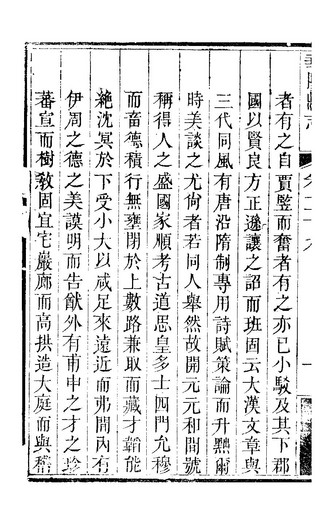 者有之自賈豎而奮者有之亦已小駁及其下郡
國以賢良方正遜讓之詔而班固云大漢文章與
三代同風有唐沿隋制專用詩賦策論而升黜爾
時美談之尤尙者若同人舉然故開元元和間號
稱得人之盛國家順考古道思皇多士四門允穆
而畜德積行無壅閉於上數路兼取而藏才韜能
絶沈冥於下受小大以咸足來遠近而弗間內有
伊周之德之美謨明而告猷外有甫申之才之珍
蕃宣而樹敎固宜宅嚴廊而高拱造大庭而與稽